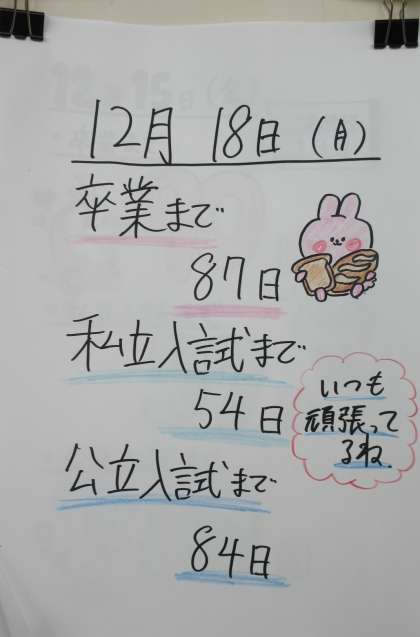 12月 18日 (月)
卒業まで
87日
私立入試まで
54日
いつも
頑張って
るね
公立入試まで
84日